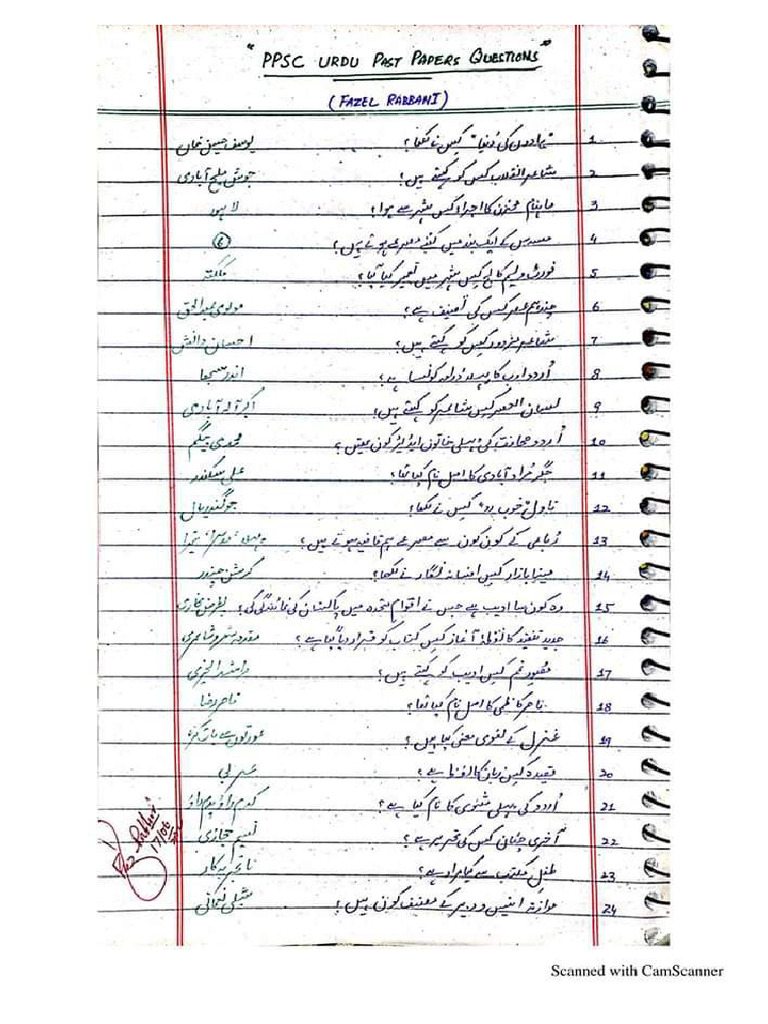 "PPSC URDU PAST PAPERS QUESTIONS"
(FAZEL RABBANI)
1 "یادوں کی دُنیا" کس نے لکھا؟ یوسف حسین خان
2 شاعر انقلاب کس کو کہتے ہیں؟ جوش ملیح آبادی
3 ماہنامہ مخزن کا اجراء کس شہر سے ہوا؟ لاہور
4 مسدس کے ایک بند میں کتنے مصرعے ہوتے ہیں؟
5 فورٹ ولیم کالج کس شہر میں تعمیر کیا گیا؟ کلکتہ
6 چند ہم عصر کس کی تصنیف ہے؟ مولوی عبدالحق
7 شاعر مزدور کس کو کہتے ہیں؟ احسان دانش
8 اُردو ادب کا پہلا ڈرامہ کونسا ہے؟ اندر سبھا
9 لسان العصر کس شاعر کو کہتے ہیں؟ اکبر الہ آبادی
10 اُردو صحافت کی پہلی خاتون ایڈیٹر کون تھیں؟ محمدی بیگم
11 جگر مُراد آبادی کا اصل نام کیا تھا؟ علی سکندر
12 ناول "خوب رو" کس نے لکھا؟ جوگندر پال
13 رُباعی کے کون کون سے مصرعے ہم قافیہ ہوتے ہیں؟ پہلا، دوسرا، چوتھا
14 مینا بازار کس افسانہ نگار نے لکھا؟ کرشن چندر
15 وہ کون سا ادیب ہے جس نے اقوام متحدہ میں پاکستان کی نمائندگی کی؟ پطرس بخاری
16 جدید تنقید کا نقطۂ آغاز کس کتاب کو قرار دیا گیا ہے؟ مقدمہ شعر و شاعری
17 مصور غم کس ادیب کو کہتے ہیں؟ راشد الخیری
18 ناصر کاظمی کا اصل نام کیا تھا؟ ناصر رضا
19 غزل کے لغوی معنی کیا ہیں؟ عورتوں سے باتیں کرنا
20 قصیدہ کس زبان کا لفظ ہے؟ عربی
21 اُردو کی پہلی مثنوی کا نام کیا ہے؟ کدم راؤ پدم راؤ
22 آخری چٹان کس کی تحریر ہے؟ نسیم حجازی
23 طفل مکتب سے کیا مراد ہے؟ ناتجربہ کار
24 موازنہ انیس و دبیر کے مصنف کون ہیں؟ شبلی نعمانی
17/06
Scanned with CamScanner